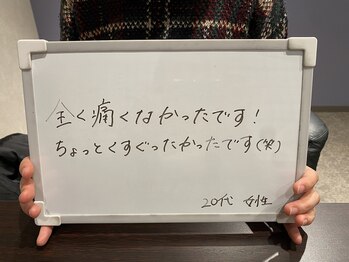 全く痛くなかったです！
ちょっとくすぐったかったです(笑)
20代 女性